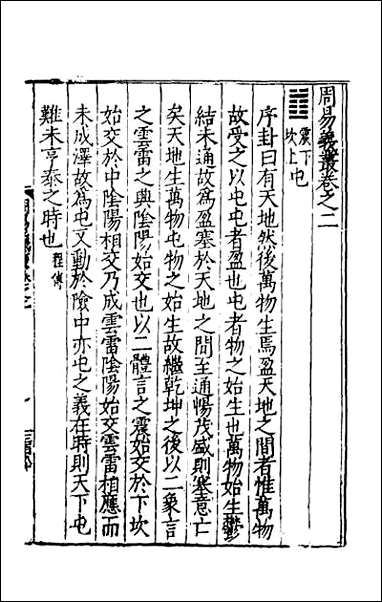 周易義叢卷之二
䷂震下坎上屯
序卦曰有天地然後萬物生焉盈天地之間者惟萬物
故受之以屯屯者盈也屯者物之始生也萬物始生鬱
結未通故為盈塞於天地之間至通暢茂盛則塞意亡
矣天地生萬物屯物之始生故繼乾坤之後以二象言
之雲雷之興陰陽始交也以二體言之震始交於下坎
始交於中陰陽相交乃成雲雷陰陽始交雲雷相應而
未成澤故為屯又動於險中亦屯之義在時則天下屯
難未亨泰之時也程傳